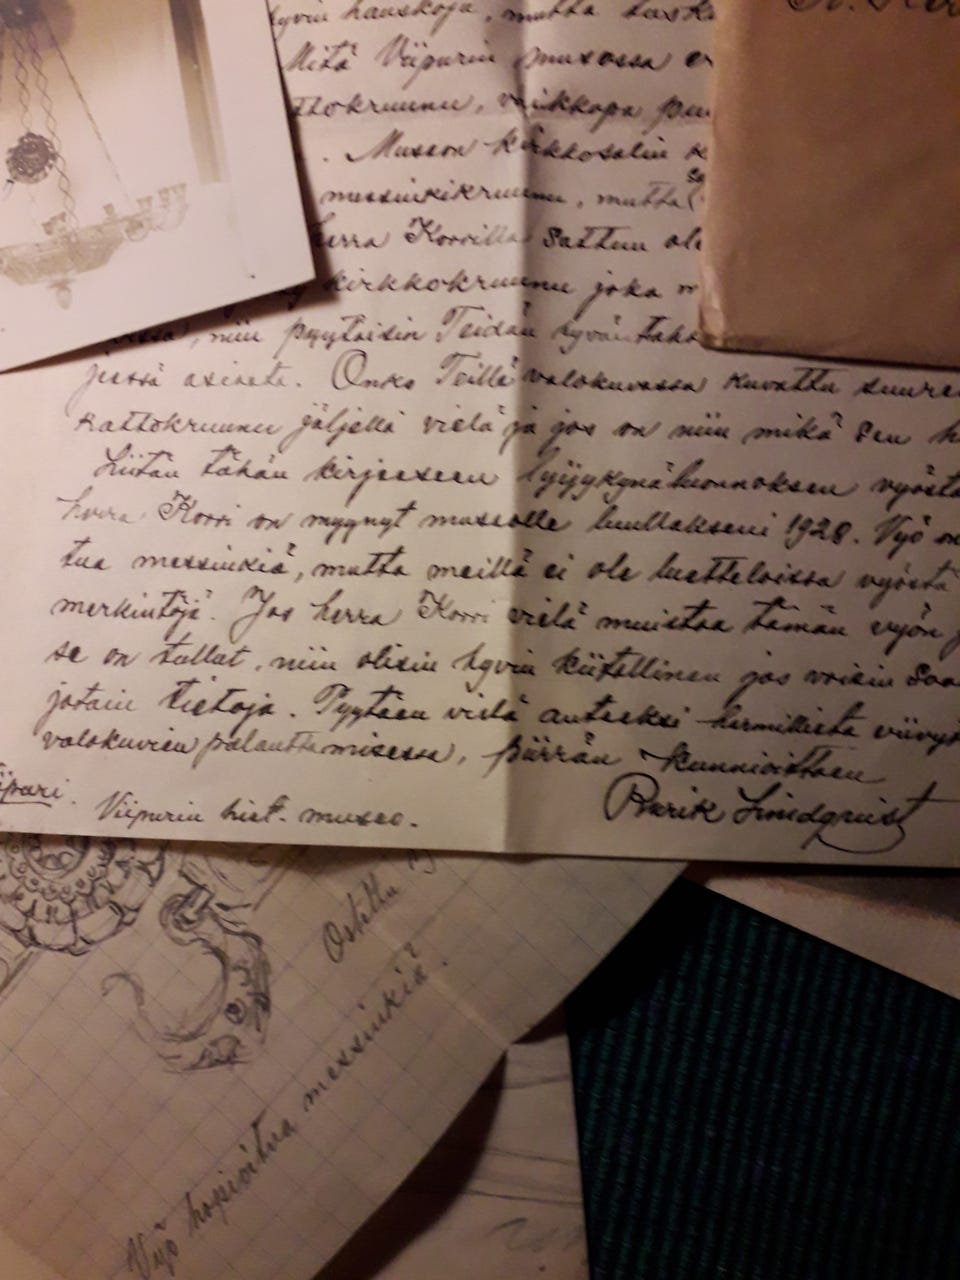 hyvin hauskoja, mutta
Mitä Viipurin museossa
ttokruunu, vaikkapa
. Museon kirkkosalin
messinkikruunu, mutta
herra Korvilla sattuu
kirkkokruunu joka
, niin pyytäisin Teidän hyvän
jessä asiasta. Onko Teillä valokuvassa kuvattu
kattokruunu jäljellä vielä ja jos on niin mikä sen h
Liitän tähän kirjeeseen lyijykynäluonnoksen
herra Korri on myynyt museolle luullakseni 1928. Vyö
tua messinkiä, mutta meillä ei ole luetteloissa vyöstä
merkintöjä. Jos herra Korri vielä muistaa tämän vyön
se on tullut, niin olisin hyvin kiitollinen jos voisin
jotain tietoja. Pyytäen vielä anteeksi
valokuvien palauttamisessa, piirrän kunnioittaen
Rurik Lindquist
Viipurin hist. museo.
Ostettu
Vyö hopioitua messinkiä.